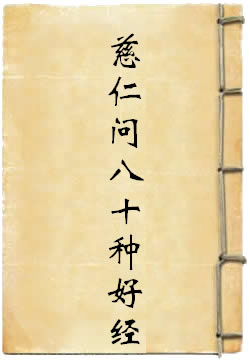 慈仁问八十种好经